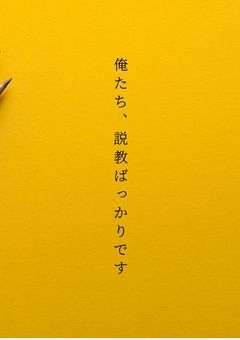 俺たち、説教ばっかりです